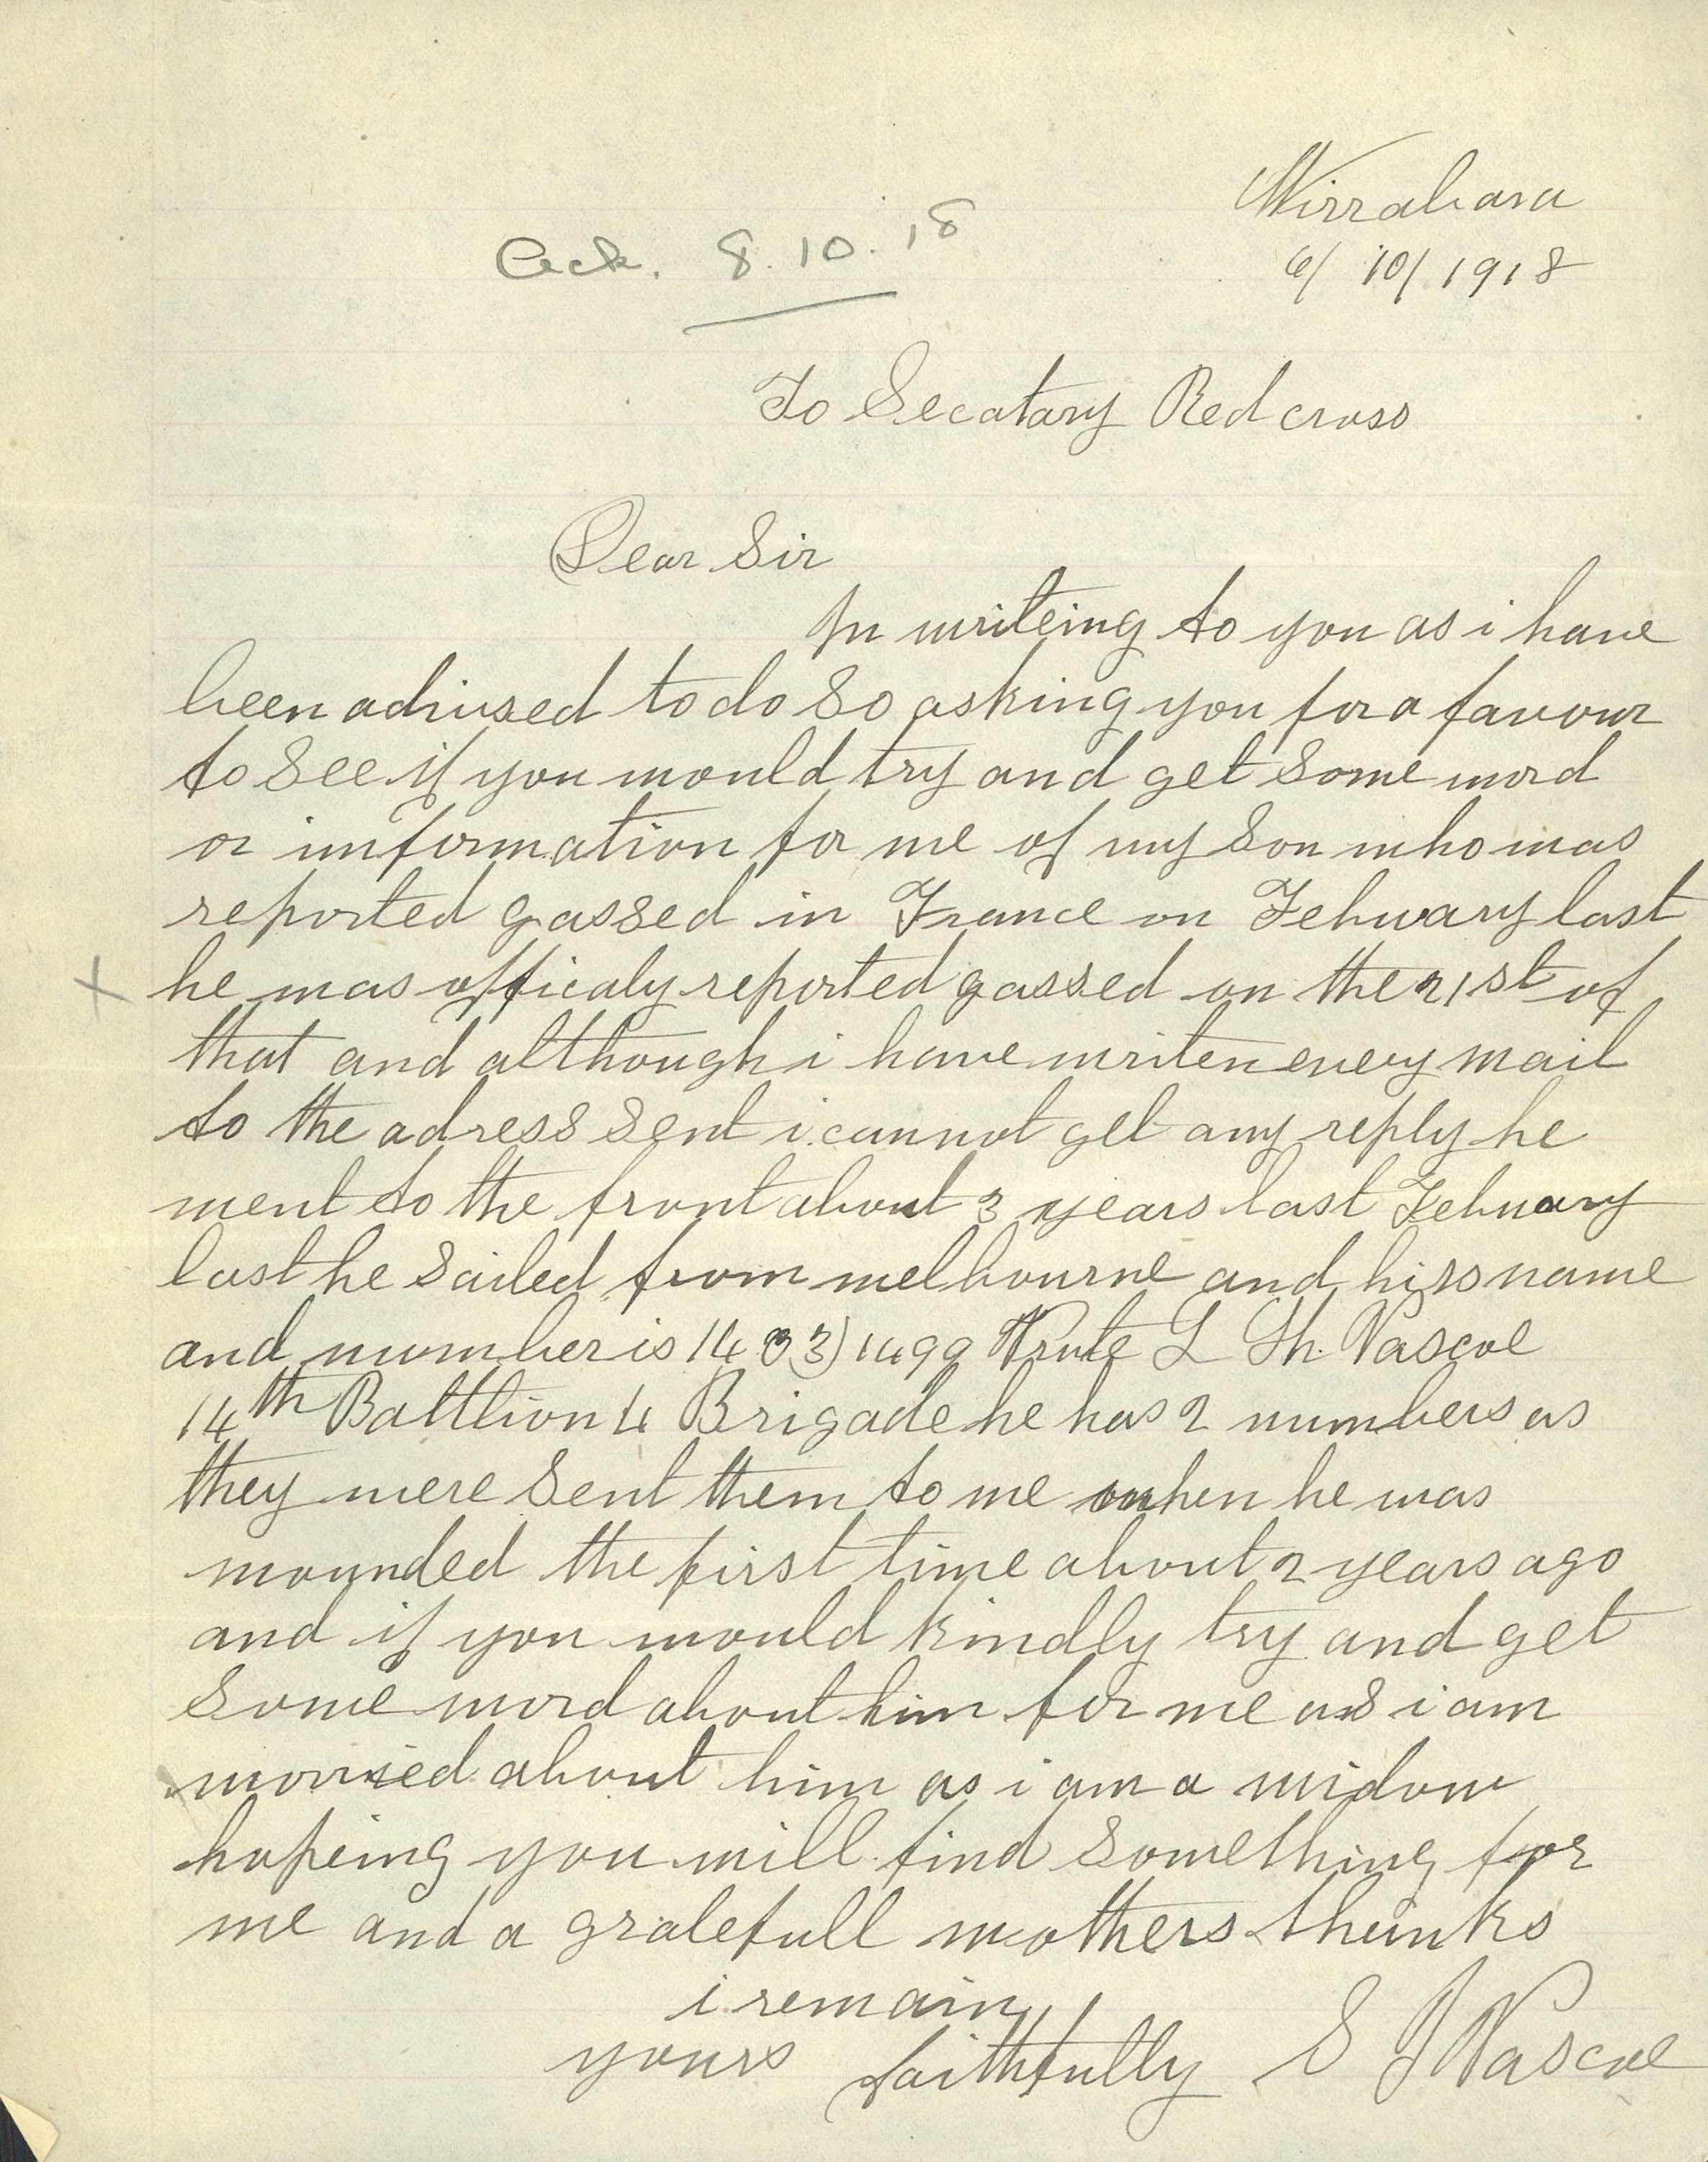 Wirrabara
Ack. 8.10.18
6/10/1918
To Secatary Red cross
Dear Sir
In writeing to you as i have
been adviused to do so asking you for a favour
to see if you would try and get some word
or imformation for me of my son who was
reported gassed in France on Febuary last
X he was officaly reported gassed on the 21st of
that and although i have writen every mail
to the adress sent i cannot get any reply he
went to the front about 3 years last Febuary
last he sailed from melbourne and his name
and number is 1499 Prvte L Pascoe
14th Battlion 4 Brigade he has 2 numbers as
they were sent them to me when he was
wounded the first time about 2 years ago
and if you would kindly try and get
some word about him for me as i am
worried about him as i am a widow
hopeing you will find something for
me and a gratefull mothers thanks
i remain
yours faithfully S J Pascoe